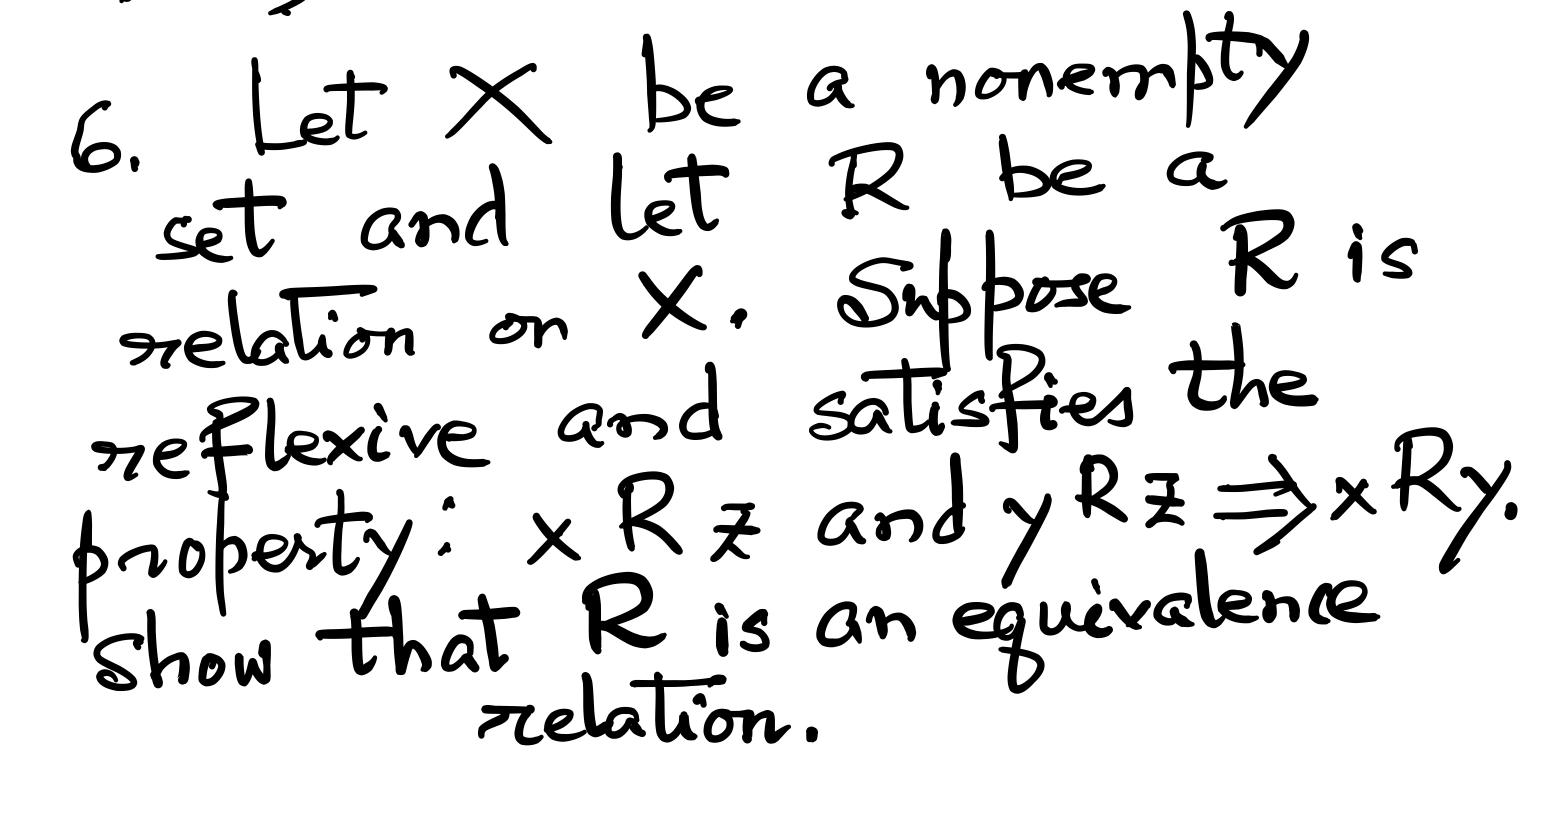 6. Let X be a nonempty
set and let R be a
relation on X. Suppose R is
reflexive and satisfies the
property: x R z and y R z ⇒ x R y.
Show that R is an equivalence
relation.